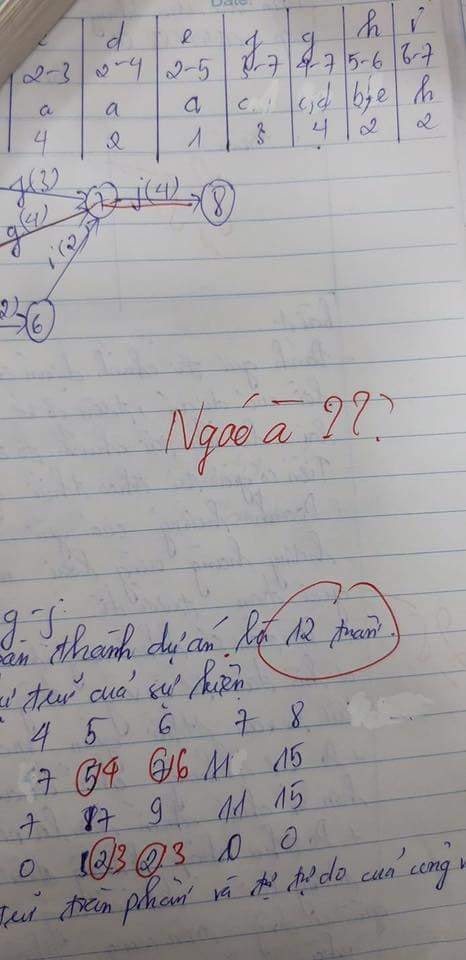 Date:
d e f g h i
2-3 2-4 2-5 3-7 4-7 5-6 6-7
a a a c c,d b,e h
4 2 1 3 4 2 2
g(4) 7 j(4) 8
i(2
2) 6
Ngáo à ???
g-j
thành dự án là 12 tuần.
trữ của sự kiện
4 5 6 7 8
7 5 4 7 6 11 15
7 7 9 11 15
0 2 3 2 3 0 0
trữ toàn phần và dự trữ tự do của công v